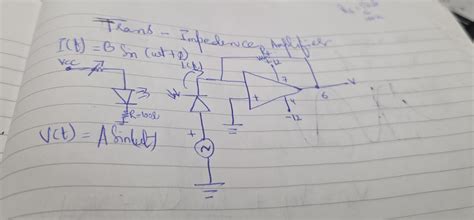 Trans - Impedence Amplifier
I(t) = B Sin (ωt+2)
I(t)
Vcc
+12
7
-
+
6
V
4
-12
R=100Ω
V(t) = A Sin(ωt)
+